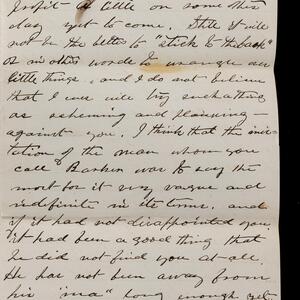 profit a little on some other
day yet to come. Still it will
not be the better to "stick to the bark"
or in other words to wrangle over
little things, and I do not believe
that I ever will try such a thing
as scheming and planning
against you. I think that the invi-
tation of the man whom you
call Barkin was to say the
most for it very vague and
indefinite in its terms, and
if it had not disappointed you
it had been a good thing that
he did not find you at all.
He has not been away from
his "ma" long enough yet